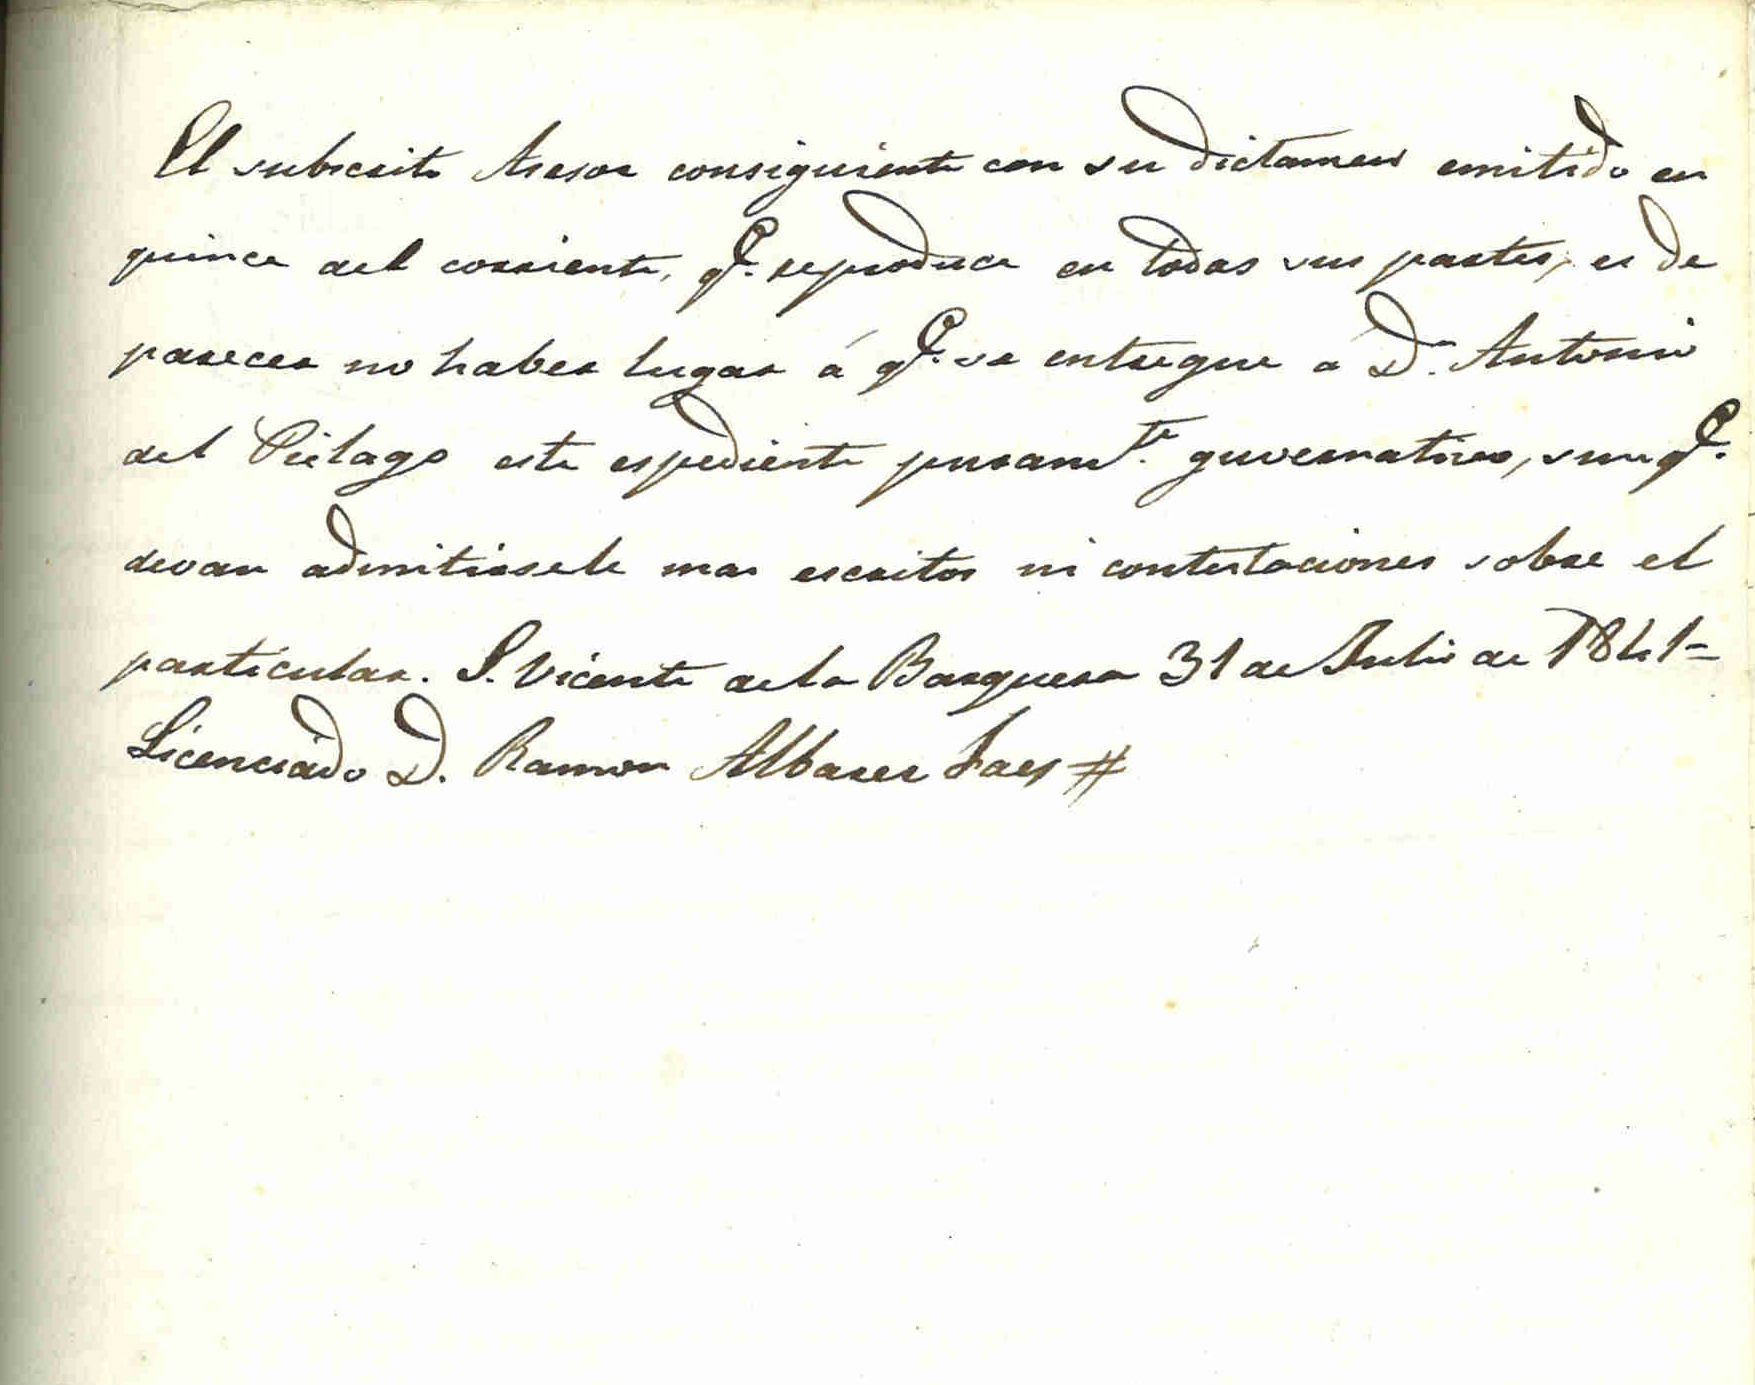 El subscrito Asesor consiguiente con su dictamen emitido en
quince del corriente, qe. reproduce en todas sus partes, es de
parecer no haber lugar á qe. se entregue á Dn. Antonio
del Piélago este espediente puramte. guvernativo, sin qe.
devan admitirsele mas escritos ni contestaciones sobre el
particular. S. Vicente de la Barquera 31 de Julio de 1841=
Licenciado D. Ramon Albarez